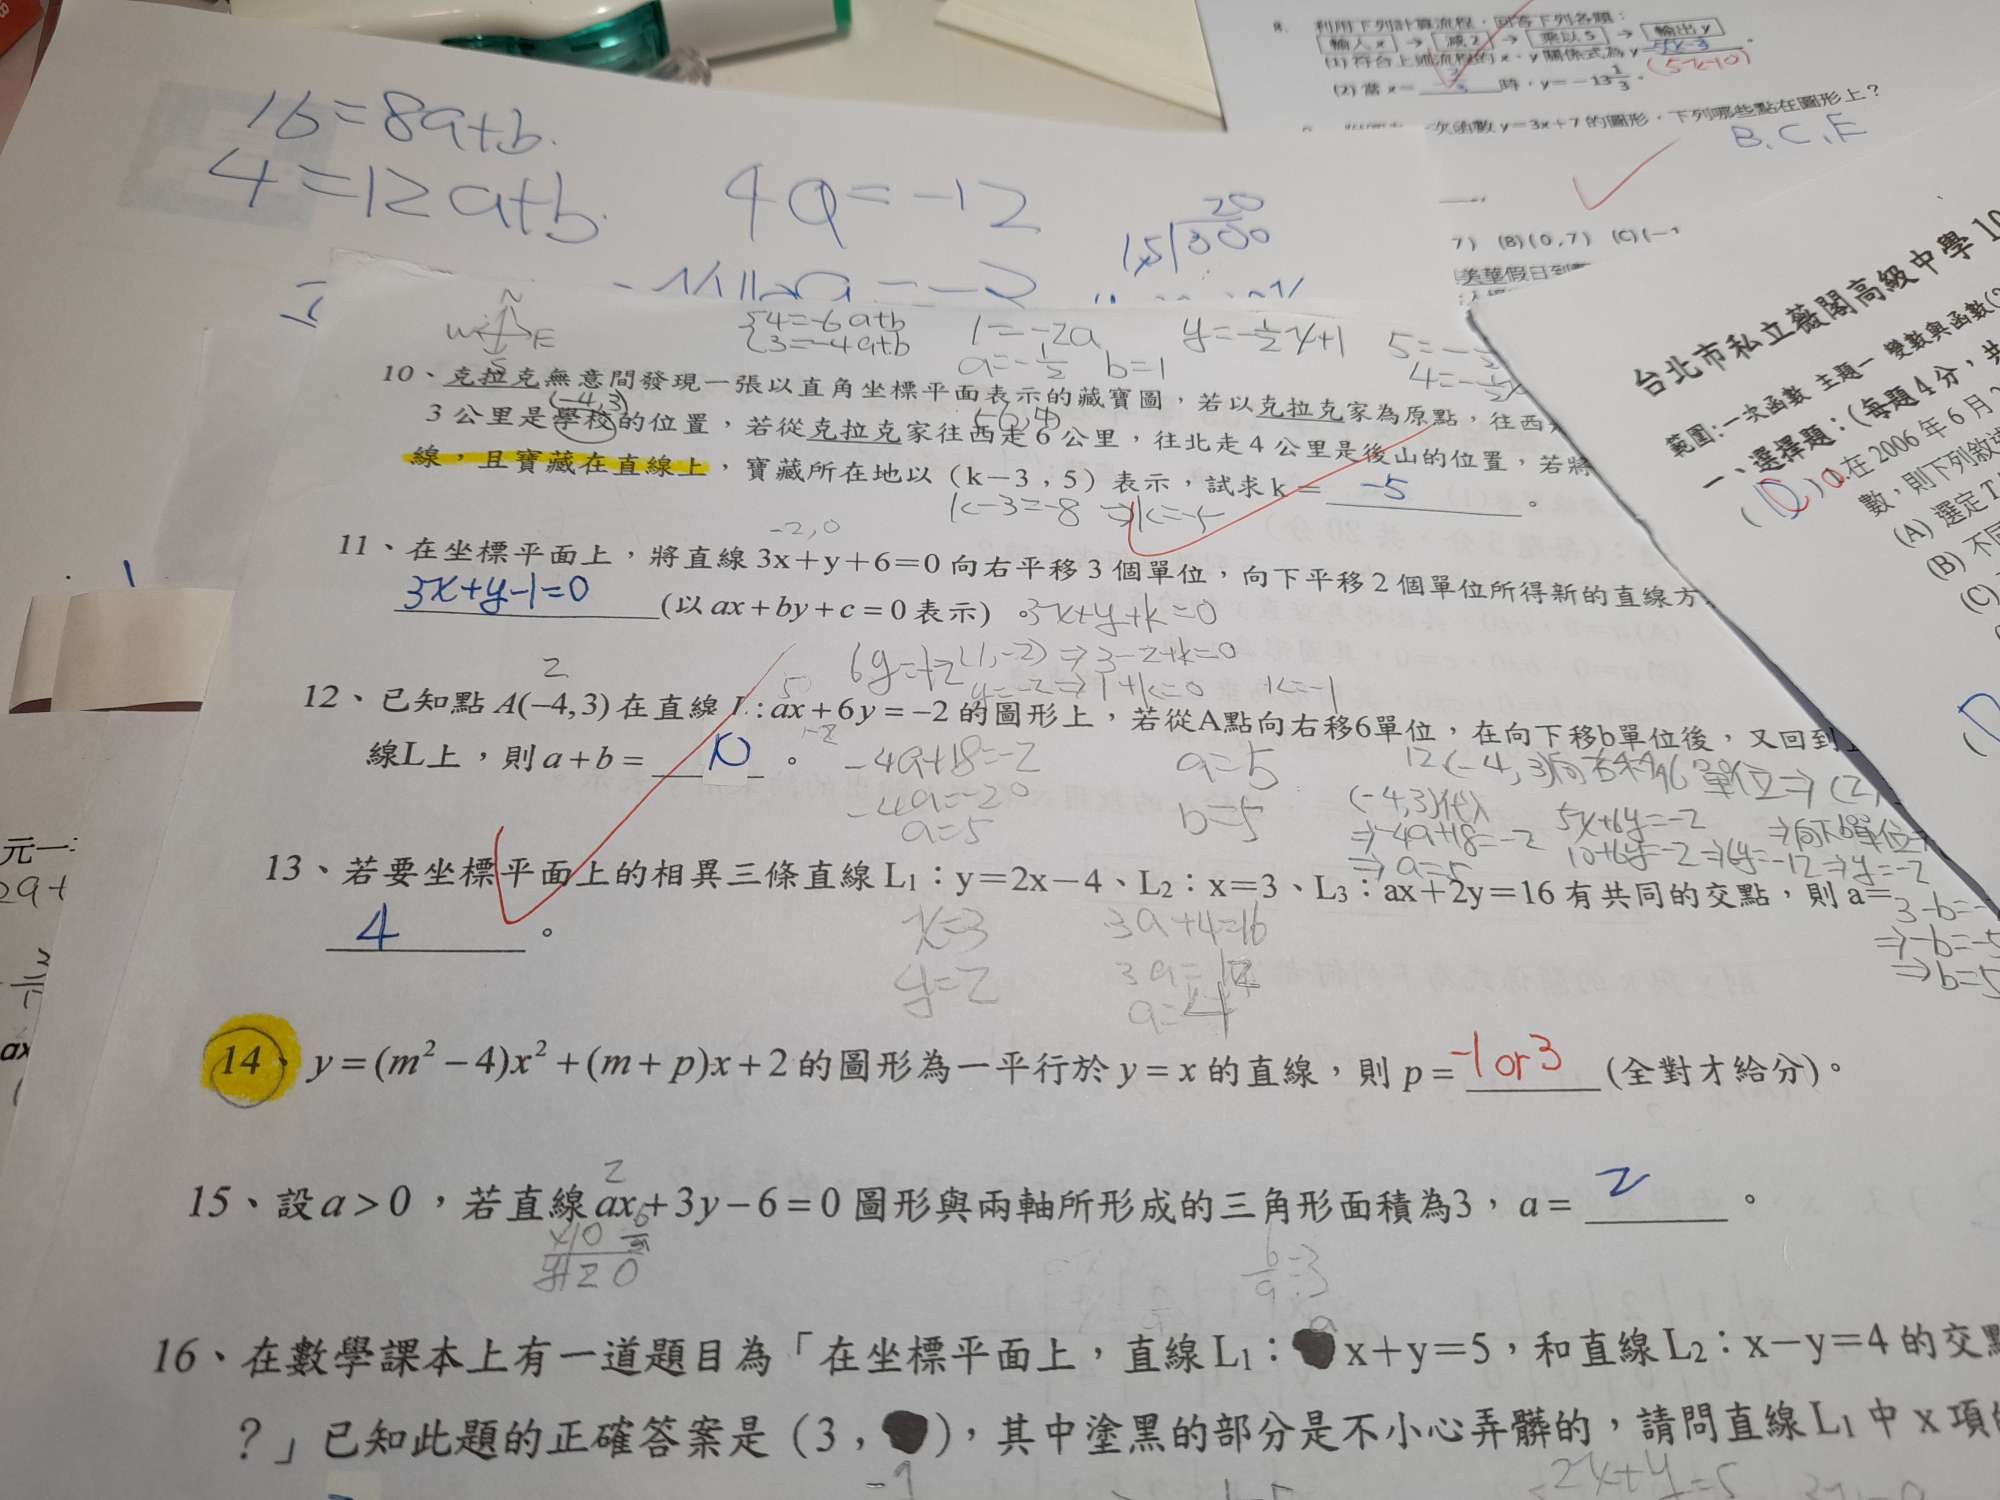 8. 利用下列計算流程,回答下列各題:
輸入 x → 減 2 → 乘以 5 → 輸出 y
(1) 符合上述流程的 x、y 關係式為 y
(5x-10)
(2) 當 x= 時,y=-13 1/3。
一次函數 y=3x+7 的圖形,下列哪些點在圖形上?
B、C、E
7) (B)(0,7) (C)(-
美華假日到
16=8a+b.
4=12a+b.
4a=-12
20
15)300
台北市私立薇閣高級中學 10
範圍:一次函數 主題一 變數與函數(
一、選擇題:(每題 4 分,共
(D) 在 2006 年 6 月
數,則下列敘述
(A) 選定 T
(B) 不同
(C)
N
W E
S
{4=-6a+b
3=-4a+b
1=-2a
a=-1/2 b=1
y=-1/2x+1
5=-
4=-1/2x
10、克拉克無意間發現一張以直角坐標平面表示的藏寶圖,若以克拉克家為原點,往西
(-4,3)
-6,4
3 公里是學校的位置,若從克拉克家往西走 6 公里,往北走 4 公里是後山的位置,若將
線,且寶藏在直線上,寶藏所在地以(k-3,5)表示,試求 k= -5 。
k-3=-8 ⇒k=-5
-2,0
11、在坐標平面上,將直線 3x+y+6=0 向右平移 3 個單位,向下平移 2 個單位所得新的直線方
3x+y-1=0 (以 ax+by+c=0 表示)。
3x+y+k=0
(1,-2)⇒3-2+k=0
⇒1+k=0 k=-1
6y=-12
y=-2
2
12、已知點 A(-4,3) 在直線 L:ax+6y=-2 的圖形上,若從A點向右移6單位,在向下移b單位後,又回到
線L上,則 a+b= 10 。
-4a+18=-2
-4a=-20
a=5
a=5
b=5
12(-4,3)向右移6單位⇒(2,
(-4,3)代入
⇒-4a+18=-2
⇒a=5
5x+6y=-2
10+6y=-2⇒6y=-12⇒y=-2
⇒向下b單位⇒
3-b=-
⇒-b=-5
⇒b=5
13、若要坐標平面上的相異三條直線 L1:y=2x-4、L2:x=3、L3:ax+2y=16 有共同的交點,則 a=
4 。
x=3
y=2
3a+4=16
3a=12
a=4
14、y=(m²-4)x²+(m+p)x+2 的圖形為一平行於 y=x 的直線,則 p= -1 or 3 (全對才給分)。
2
15、設 a>0,若直線 ax+3y-6=0 圖形與兩軸所形成的三角形面積為3,a= 2 。
x|0 6/a
y|2 0
6/a=3
16、在數學課本上有一道題目為「在坐標平面上,直線 L1: x+y=5,和直線 L2:x-y=4 的交點
?」已知此題的正確答案是(3, ),其中塗黑的部分是不小心弄髒的,請問直線 L1 中 x 項
-1
2x+y=5
元一
2a+
ax